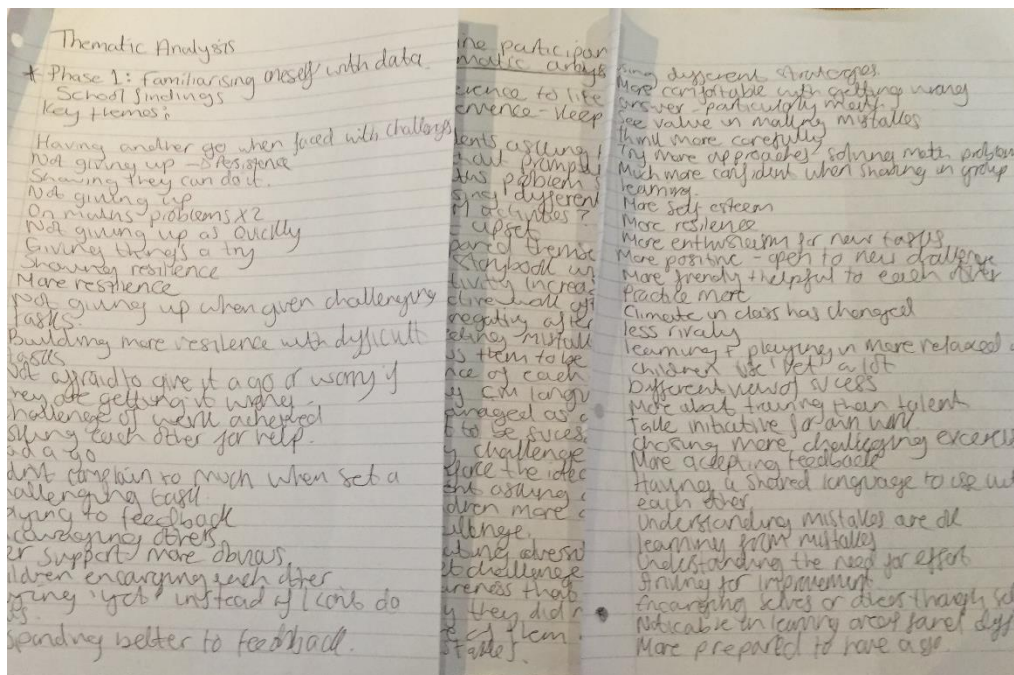 Thematic Analysis
* Phase 1: Familiarising oneself with data.
School findings
Key themes:
Having another go when faced with challenge
Not giving up → Persistence
Showing they can do it.
Not giving up
On maths problems x2
Not giving up as quickly
Giving things a try
Showing resilience
More resilience
Not giving up when given challenging
tasks.
Building more resilence with difficult
tasks
Not afraid to give it a go or worry if
they are getting it wrong.
challenge of work achieved
asking each other for help.
had a go
didnt complain so much when set a
challenging task
to feedback
encouraging others
support more obvious
children encouraging each other
saying 'yet' instead of I cant do
responding better to feedback.
ine participan
matic analys
ience to life
ervence - keep
ents asking
hout prompt
this problem s
sing different
activities?
upset
pared themse
storybook w
tivity increas
negativ after
eeling mistak
s them to be
nce of each
CM langu
uraged as
t to be succes
challenge
ent asking
dren more
allenge.
t challenge
areness that
they did n
of them
using different strategies.
More comfortable with getting wrong
answer - particularly maths.
See value in making mistakes
think more carefully
Try more approaches - solving math problem
Much more confident when sharing in group
learning.
More self esteem
More resilence
More enthusiasm for new tasks
More positive - open to new challenge
More friendly + helpful to each other
Practice more
Climate in class has changed
less rivalry
learning + playing in more relaxed
children use 'yet' a lot
Different view of success
More about training than talent
Take initiative for own work
chosing more challenging excercis
More accepting feedback
Having a shared language to use wit
each other
Understanding mistakes are ok
learning from mistakes
Understanding the need for effort
Striving for improvement
Encouraging selves or others through
Noticable in learning areas
More prepared to have a go.